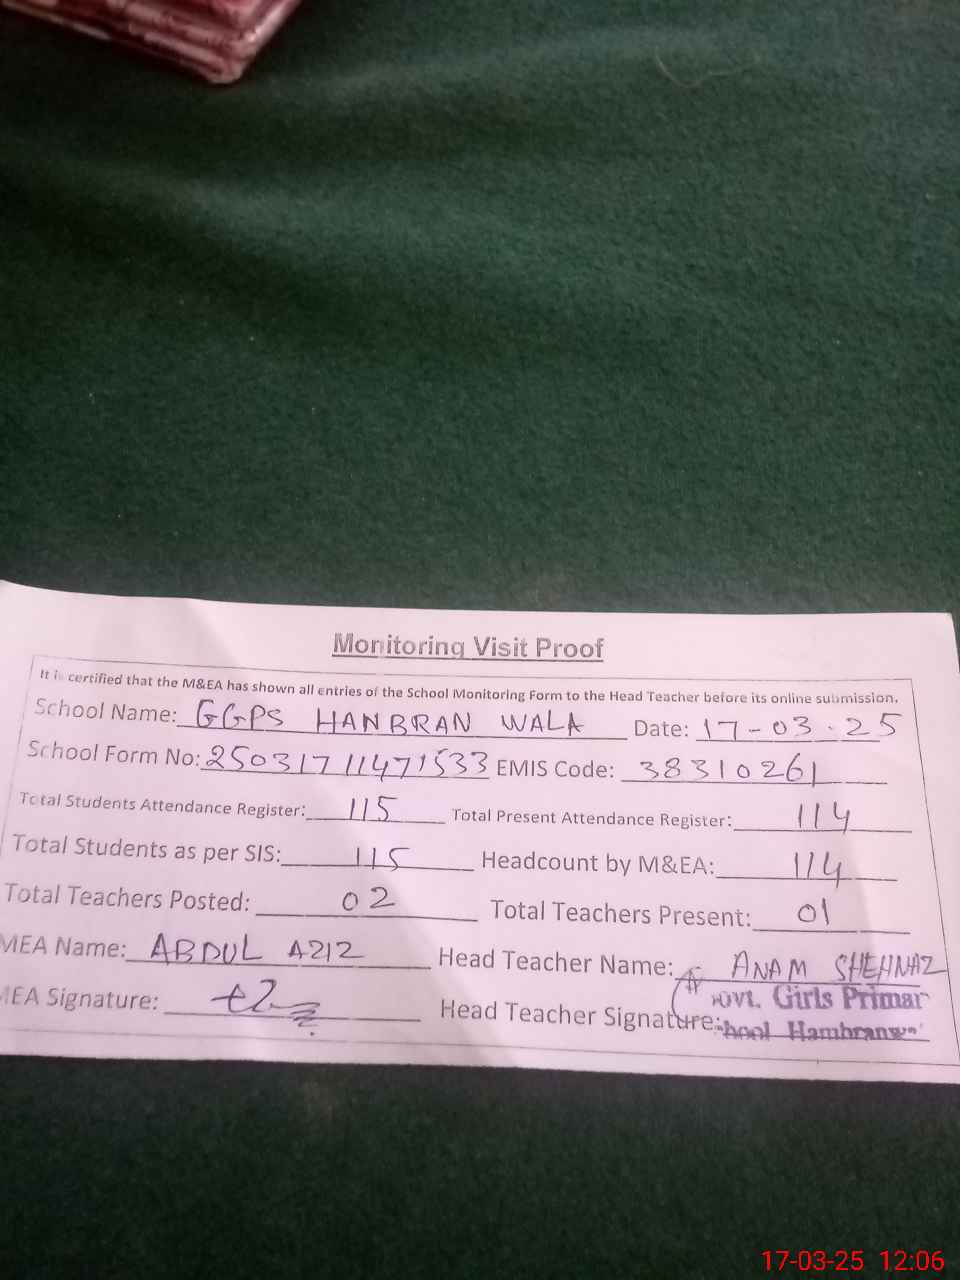 Monitoring Visit Proof
It is certified that the M&EA has shown all entries of the School Monitoring Form to the Head Teacher before its online submission.
School Name: GGPS HANBRAN WALA Date: 17-03-25
School Form No: 25031711471533 EMIS Code: 38310261
Total Students Attendance Register: 115 Total Present Attendance Register: 114
Total Students as per SIS: 115 Headcount by M&EA: 114
Total Teachers Posted: 02 Total Teachers Present: 01
MEA Name: ABDUL AZIZ Head Teacher Name: ANAM SHEHNAZ
MEA Signature: Head Teacher Signature:
Govt. Girls Primar
hool Hambranw
17-03-25 12:06